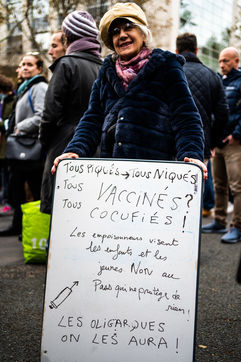 TOUS PIQUÉS → TOUS NIQUÉS
TOUS VACCINÉS ?
TOUS COCUFIÉS !
Les empoisonneurs visent
les enfants et les
jeunes NON au
Pass qui ne protège de
rien !
LES OLIGARQUES
ON LES AURA !